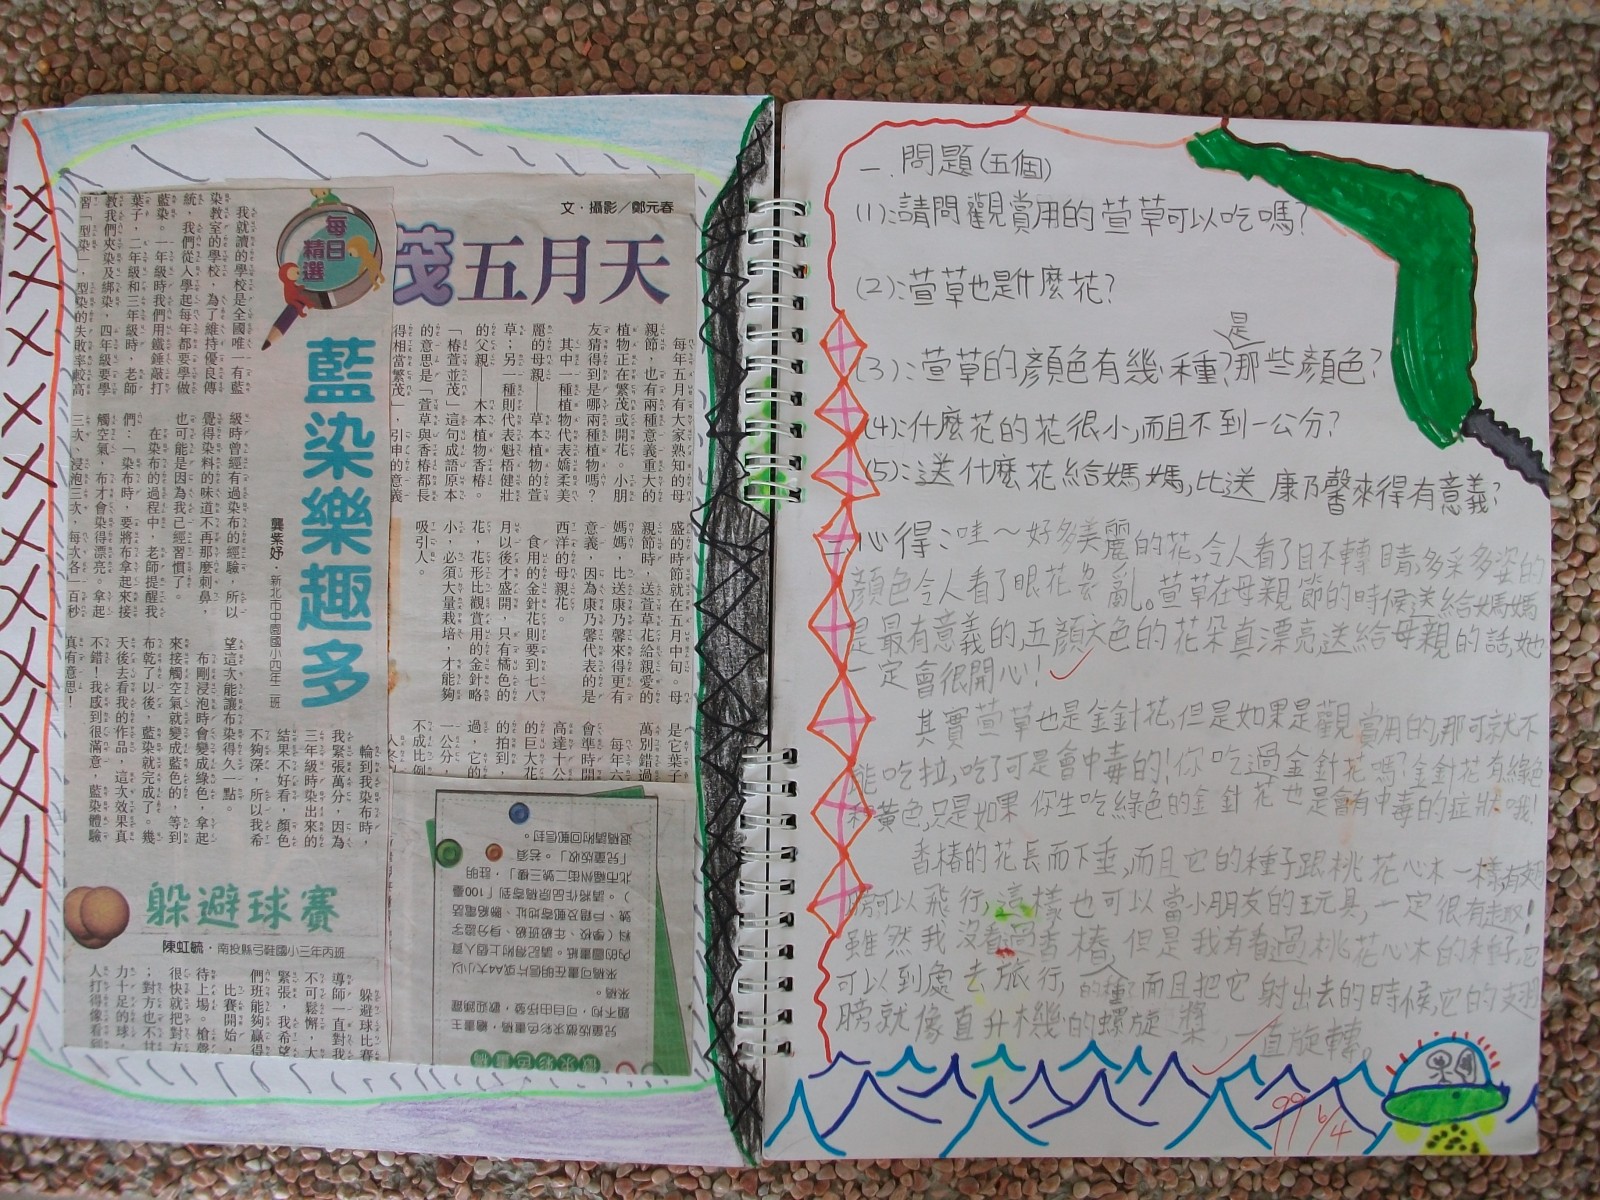 文‧攝影／鄭元春
茂五月天
每年五月有大家熟知的母
親節，也有兩種意義重大的
植物正在繁茂或開花。小朋
友猜得到是哪兩種植物嗎？
其中一種植物代表嬌柔美
麗的母親——草本植物的萱
草；另一種則代表魁梧健壯
的父親——木本植物香椿。
「椿萱並茂」這句成語原本
的意思是「萱草與香椿都長
得相當繁茂」，引申的意義
盛的時節就在五月中旬。母
親節時，送萱草花給親愛的
媽媽，比送康乃馨來得更有
意義，因為康乃馨代表的是
西洋的母親花。
食用的金針花則要到七八
月以後才盛開，只有橘色的
花，花形比觀賞用的金針略
小，必須大量栽培，才能夠
吸引人。
是它葉子
萬別錯過
每年六
會準時開
高達十公
的巨大花
的拍到，
過，它的
一公分，
不成比例
每日精選
藍染樂趣多
龔紫妤‧新北市中園國小四年二班
我就讀的學校是全國唯一有藍
染教室的學校，為了維持優良傳
統，我們從入學起每年都要學做
藍染。一年級時我們用鐵錘敲打
葉子，二年級和三年級時，老師
教我們夾染及綁染，四年級要學
習「型染」，型染的失敗率較高
級時曾經有過染布的經驗，所以
覺得染料的味道不再那麼刺鼻，
也可能是因為我已經習慣了。
在染布的過程中，老師提醒我
們：「染布時，要將布拿起來接
觸空氣，布才會染得漂亮。拿起
三次、浸泡三次，每次各一百秒
輪到我染布時，
我緊張萬分，因為
三年級時染出來的
結果不好看，顏色
不夠深，所以我希
望這次能讓布染得久一點。
布剛浸泡時會變成綠色，拿起
來接觸空氣就變成藍色的，等到
布乾了以後，藍染就完成了。幾
天後去看我的作品，這次效果真
不錯！我感到很滿意，藍染體驗
真有意思！
躲避球賽
陳虹毓‧南投縣弓鞋國小三年丙班
躲避球比賽
導師一直對我
不可鬆懈，大
緊張，我希望
們班能夠贏得
比賽開始，
待上場。槍聲
很快就把對方
；對方也不甘
力十足的球，
人打得像看到
徵求彩色畫稿
一、問題(五個)
(1):請問觀賞用的萱草可以吃嗎?
(2):萱草也是什麼花?
(3):萱草的顏色有幾種?是那些顏色?
(4):什麼花的花很小,而且不到一公分?
(5):送什麼花給媽媽,比送康乃馨來得有意義?
二、心得:哇~好多美麗的花,令人看了目不轉睛,多采多姿的
顏色令人看了眼花瞭亂。萱草在母親節的時候送給媽媽
是最有意義的,五顏六色的花朵真漂亮送給母親的話,她
一定會很開心!
其實萱草也是金針花,但是如果是觀賞用的,那可就不
能吃拉,吃了可是會中毒的!你吃過金針花嗎?金針花有綠色
和黃色,只是如果你生吃綠色的金針花也是會有中毒的症狀哦!
香椿的花長而下垂,而且它的種子跟桃花心木一樣有翅
膀可以飛行,這樣也可以當小朋友的玩具,一定很有趣!
雖然我沒看過香椿,但是我有看過桃花心木的種子,它
可以到處去旅行,而且把它射出去的時候,它的翅
膀就像直升機的螺旋槳,一直旋轉。
99 6/4